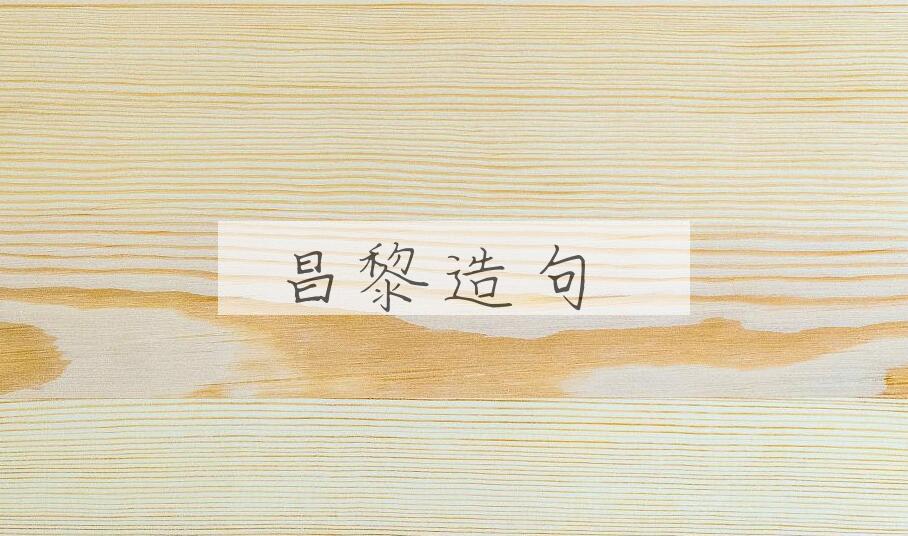 昌黎造句